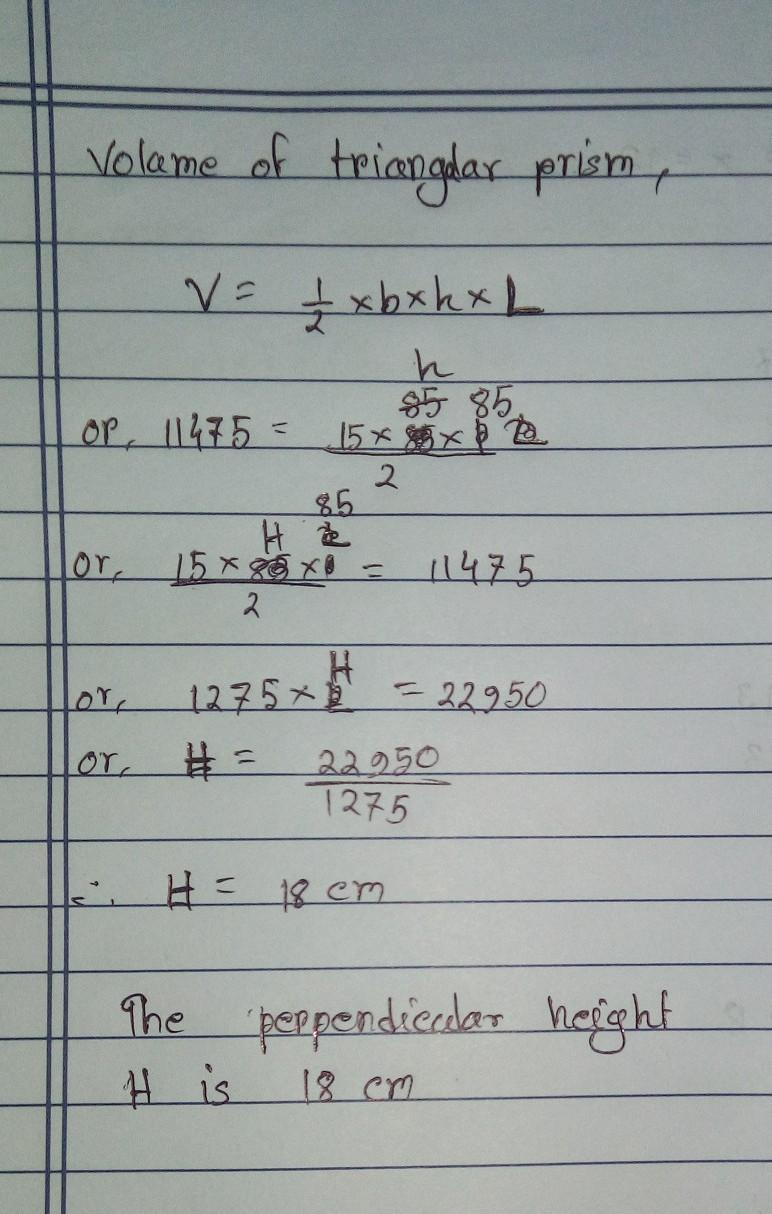 Volame of triangular prism,
V = 1/2 × b × h × L
or, 11475 = 15 × h × 85 / 2
or, 15 × H × 85 / 2 = 11475
or, 1275 × H = 22950
or, H = 22950 / 1275
∴ H = 18 cm
The perpendicular height
H is 18 cm